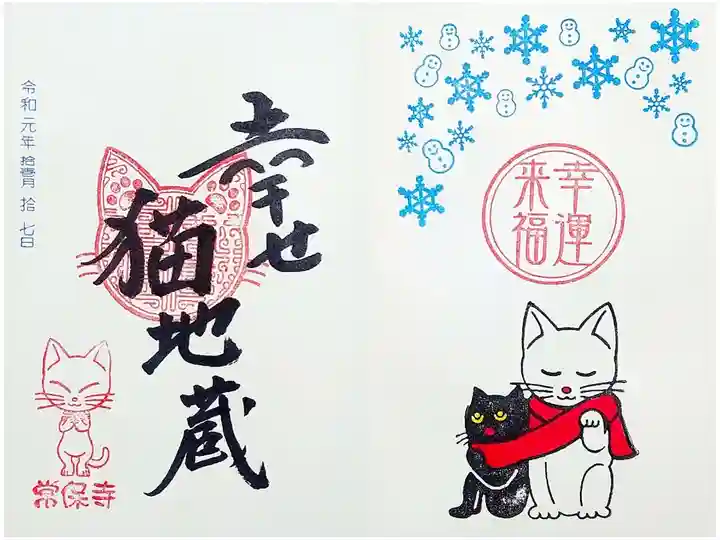 幸運
来福
幸せ
猫地蔵
令和元年 拾壱月 拾七日
常保寺